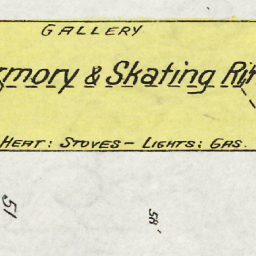 GALLERY
rmory & Skating Rin
HEAT: STOVES - LIGHTS: GAS.
51
58'